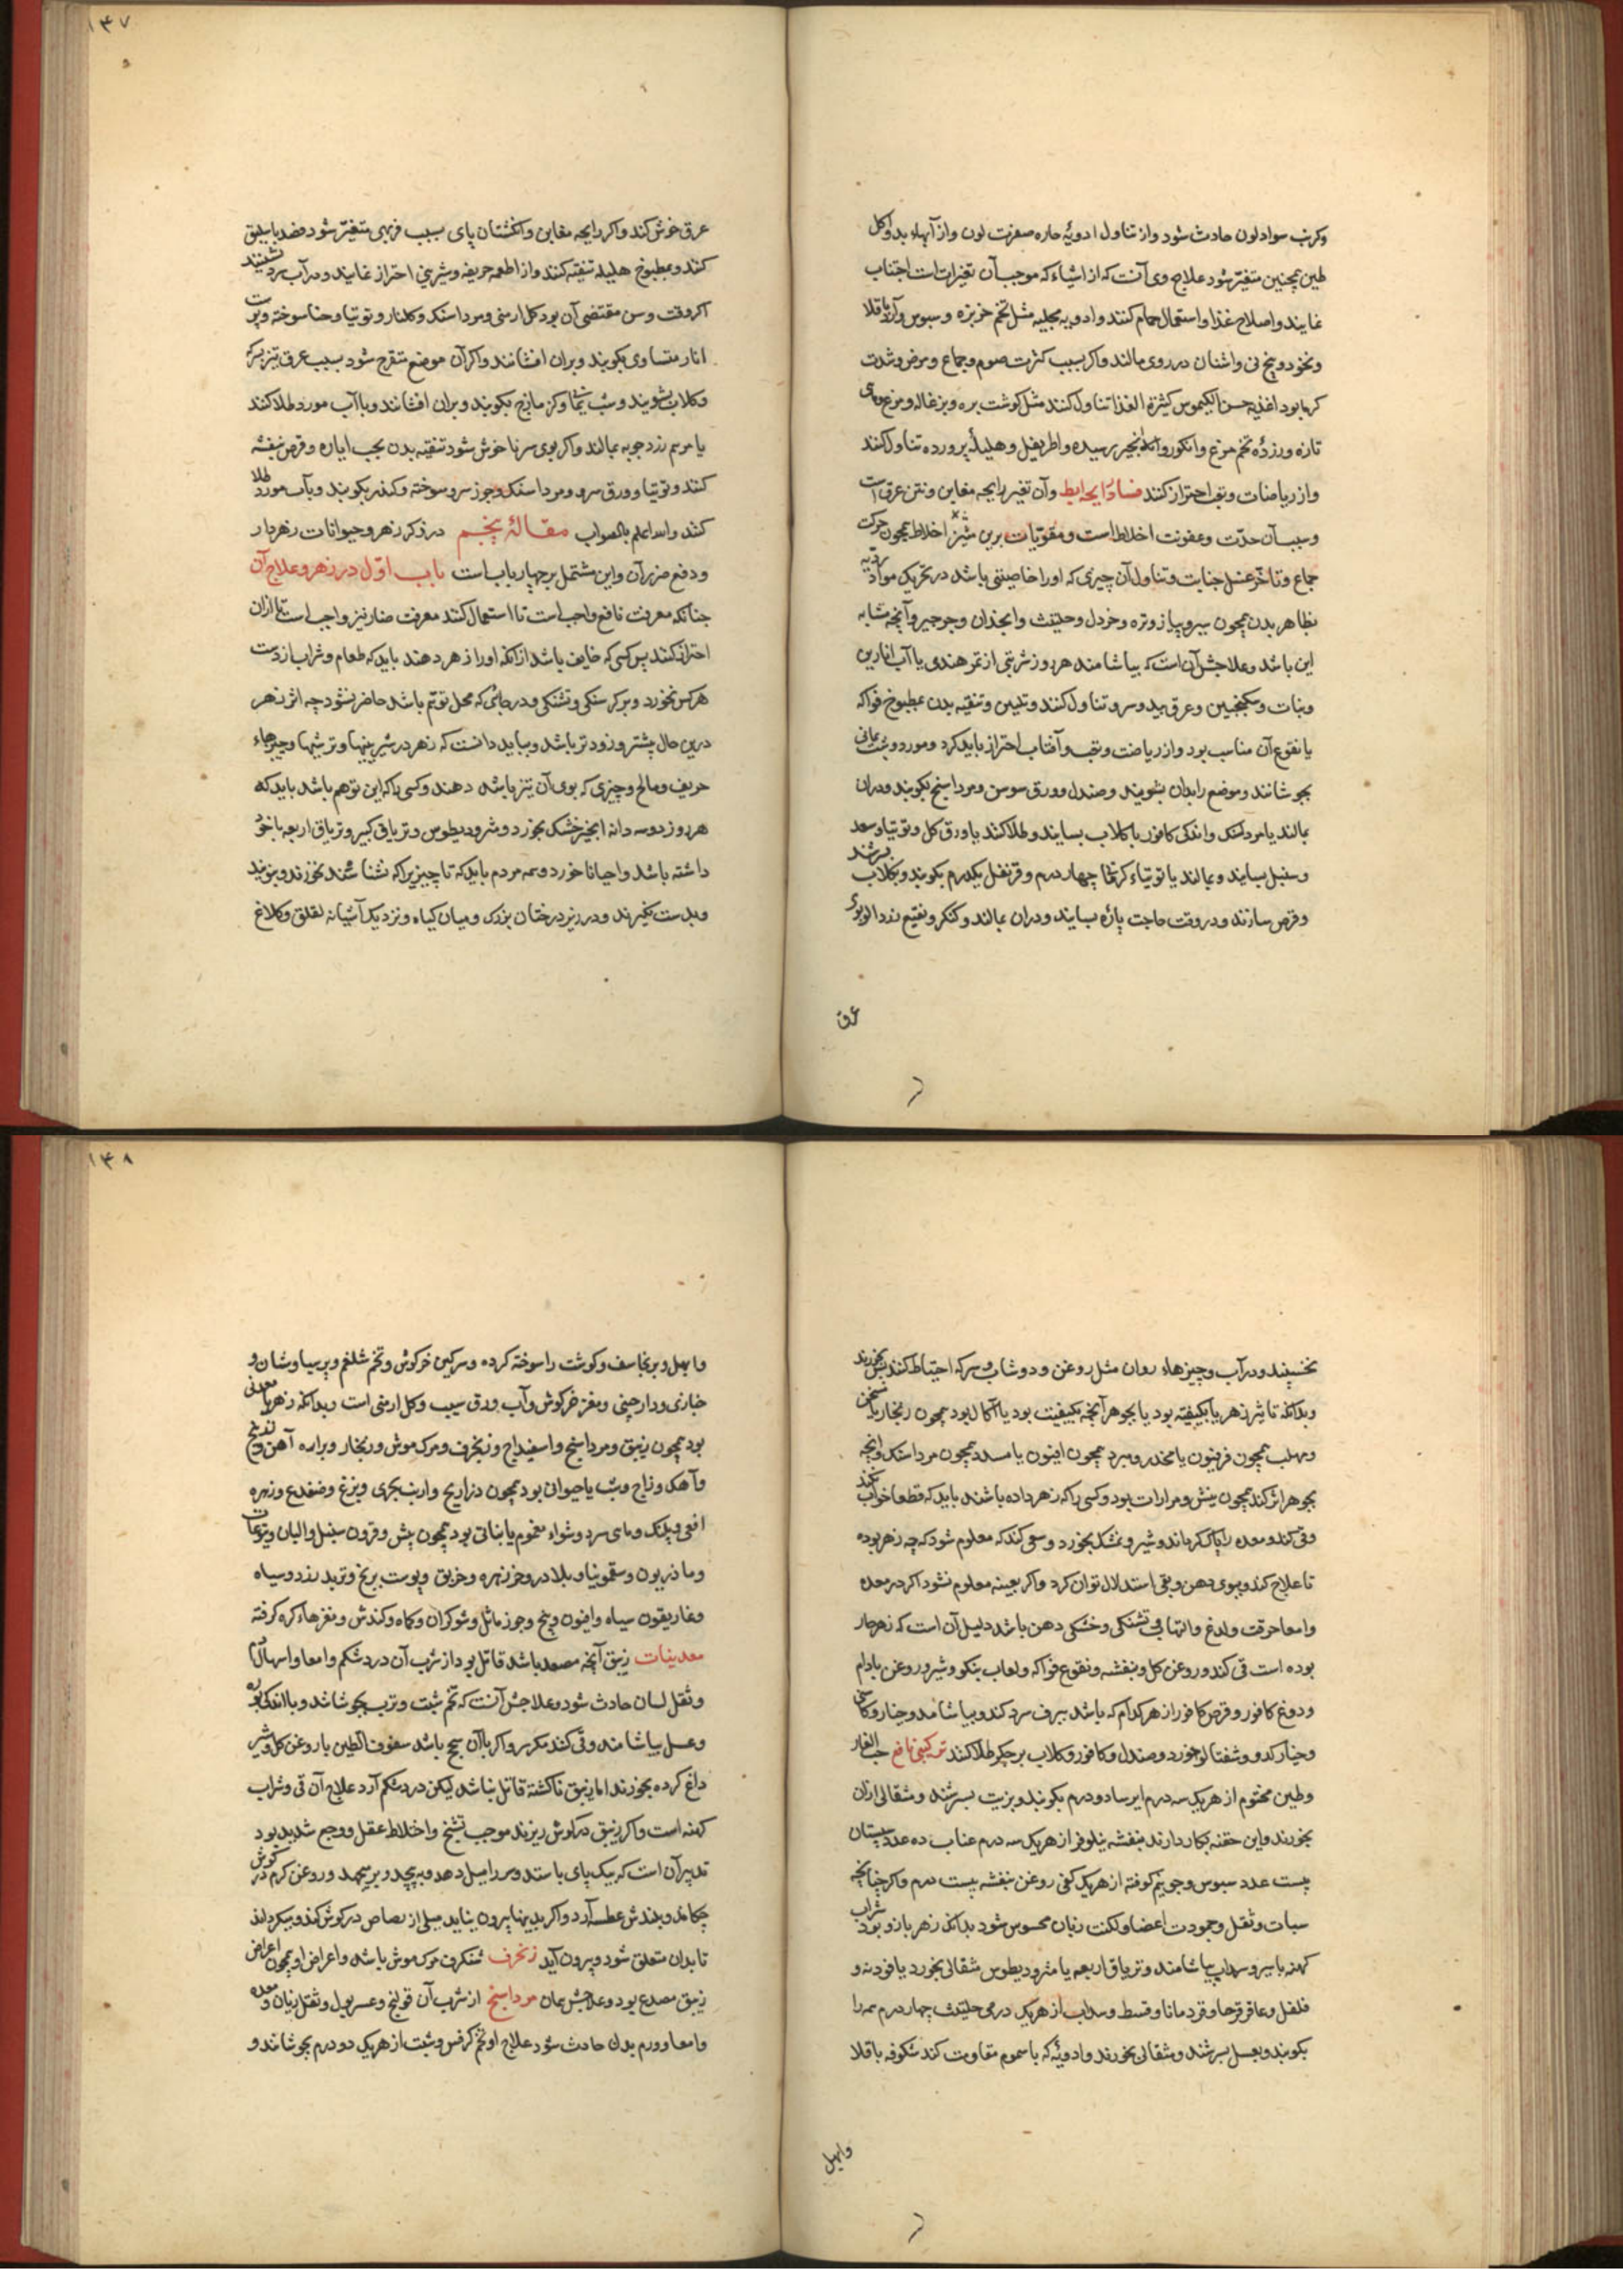 وکرنب سواد لون حادث شود و از تناول ادویهٔ حاره صفرت لون و از آبهاء بد و اکل
طین همچنین متغیر شود علاج وی آنست که از اشیاء که موجب آن تغیرات است اجتناب
نمایند و اصلاح غذا و استعمال حمام کنند و ادویه مجلیه مثل تخم خربزه و سبوس و آرد باقلا
و نخود و بیخ نی و اشنان در روی مالند و اکر بسبب کثرت صوم و جماع و مرض و شدت
کرما بود اغذیه حسن الکیموس کثیرة الغذا تناول کنند مثل کوشت بره و بزغاله و مرغ و ماهی
تازه و زردهٔ تخم مرغ و انکور و انجیر رسیده و اطریفل و هلیلهٔ پرورده تناول کنند
و از ریاضات و تعب احتراز کنند فساد رایحه ابط و آن تغیر رایحه مغابن و نتن عرق است
و سبب آن حدّت و عفونت اخلاط است و مقویات برین مثیر اخلاط همچون حرکت
جماع و تاخر غسل جنابت و تناول آن چیزی که او را خاصیتی باشد در تحریک مواد ردیه
بظاهر بدن همچون سیر و پیاز و تره و خردل و حلتیت و انجدان و جرجیر و آنچه مشابه
این باشد و علاجش آن است که بیاشامند هر روز شربتی از تمر هندی یا آب انارین
و نبات و سکنجبین و عرق بید و سرو تناول کنند و تلیین و تنقیه بدن بمطبوخ فواکه
یا نقوع آن مناسب بود و از ریاضت و تعب و آفتاب احتراز باید کرد و مورد و شب یمانی
بجوشانند و موضع را بدان بشویند و صندل و ورق سوسن و مرداسنج بکوبند و دران
بمالند یا مردسنک و اندکی کافور با کلاب بسایند و طلا کنند یا ورق کل و توتیا و سعد
و سنبل بسایند و بمالند یا توتیاء کرمانی چهار درم و قرنفل یکدرم بکوبند و بکلاب بسرشند
و قرص سازند و در وقت حاجت پارهٔ بسایند و دران بمالند و کنکر و نقیع زرد آلو بوی
عرق
١۴٧
عرق خوش کند و اکر رایحه مغابن و انکشتان پای بسبب فربهی متغیر شود فصد باسلیق
کنند و بمطبوخ هلیله تنقیه کنند و از اطعمه حریفه و شیرینی احتراز نمایند و در آب سرد نشینند
اکر وقت و سن مقتضی آن بود کل ارمنی و مرداسنک و کلنار و توتیا و حنا سوخته و پوست
انار متساوی بکوبند و بران افشانند و اکر آن موضع متقرح شود بسبب عرق تیز بسرکه
و کلاب بشویند و شب یمانی و کزمازج بکوبند و بران افشانند و با آب مورد طلا کنند
یا مرهم زردچوبه بمالند و اکر بوی سر ناخوش شود تنقیه بدن بحب ایاره و قرص بنفشه
کنند و توتیا و ورق سرو و مرداسنک و جوز سرو سوخته و کندر بکوبند و بآب مورد طلا
کنند والله اعلم بالصواب مقالهٔ پنجم در ذکر زهر و حیوانات زهردار
و دفع ضرر آن و این مشتمل بر چهار باب است باب اوّل در زهر و علاج آن
چنانکه معرفت نافع واجب است تا استعمال کنند معرفت ضار نیز واجب است تا از آن
احتراز کنند پس کسی که خایف باشد از آنکه او را زهر دهند باید که طعام و شراب از دست
هر کس نخورد و بر کرسنکی و تشنکی و در جائی که محل توهم باشد حاضر نشود چه اثر زهر
درین حال بیشتر و زودتر باشد و بباید دانست که زهر در شیرینیها و ترشیها و چیزهاء
حریف و مالح و چیزی که بوی آن تیز باشد دهند و کسی را که این توهم باشد باید که
هر روز دو سه دانه انجیر خشک بخورد و مثرودیطوس و تریاق کبیر و تریاق اربعه با خود
داشته باشد و احیانا خورد و همه مردم باید که تا چیزی را که نشناسند نخورند و نبویند
و بدست نکیرند و در زیر درختان بزرک و میان کیاه و نزدیک آشیانه لقلق و کلاغ
نخسپند و در آب و چیزهاء روان مثل روغن و دوشاب و سرکه احتیاط کنند پس بخورند
و بدانکه تاثیر زهر یا بکیفیته بود یا بجوهر آنچه بکیفیت بود یا اکال بود همچون زنجار یا مسخن
و ملهب همچون فرفیون یا مخدر و مبرد همچون افیون یا مسدد همچون مرداسنک و آنچه
بجوهر اثر کند همچون بیش و مرارات بود و کسی را که زهر داده باشند باید که قطعا خواب نکند
و قی کند و معده را پاک کرداند و شیر و نمشک بخورد و سعی کند که معلوم شود که چه زهر بوده
تا علاج کند و ببوی دهن و بقی استدلال توان کرد و اکر بعینه معلوم نشود اکر در معده
و امعا حرقت و لدغ و التهاب و تشنکی و خشکی دهن باشد دلیل آن است که زهر حار
بوده است قی کند و روغن کل و بنفشه و نقوع فواکه و لعاب بنکو و شیر و روغن بادام
و دوغ کافور و قرص کافور از هر کدام که باشد ببرف سرد کند و بیاشامد و خیار و کاسنی
و خیار کدو و شفتالو خورد و صندل و کافور و کلاب بر جکر طلا کنند ترکیبی نافع حب الغار
و طین مختوم از هر یک سه درم ایرسا دو درم بکوبند و بزیت بسرشند و مثقالی از آن
بخورند و این حقنه بکار دارند بنفشه نیلوفر از هر یک سه درم عناب ده عدد سپستان
بیست عدد سبوس و جو نیم کوفته از هر یک کفی روغن بنفشه بیست درم و اکر چنانچه
سبات و ثقل و جمودت اعضا و لکنت زبان محسوس شود بدانکه زهر بارد بود شراب
کهنه با سیر و سداب بیاشامند و تریاق اربعه یا مثرودیطوس مثقالی بخورد یا فودنه و
فلفل و عاقرقرحا و قردمانا و قسط و سداب از هر یک درمی حلتیت چهار درم همه را
بکوبند و بعسل بسرشند و مثقالی بخورند و ادویهٔ که با سموم مقاومت کند شکوفه باقلا
وابهل
١۴٨
وابهل و برنجاسف و کوشت راسو خته کرده و سرکین خرکوش و تخم شلغم و پرسیاوشان و
خبازی و دارچینی و مغز خرکوش و آب ورق سیب و کل ارمنی است و بدانکه زهر یا معدنی
بود همچون زیبق و مرداسنج و اسفیداج و زنجرف و مرک موش و زنجار و براده آهن و زرنیخ
و آهک و زاج و شب یا حیوانی بود همچون ذراریح و ارنب بحری و وزغ و ضفدع و زهره
افعی و پلنک و ماهی سرد و شواء مغموم یا نباتی بود همچون بیش و قرون سنبل و البان و یتوعات
و ماذریون و سقمونیا و بلادر و خرزهره و خربق و پوست برنج و تربد زرد و سیاه
و غاریقون سیاه و افیون و بنج و جوز ماثل و شوکران و کماه و کندش و مغزهاء کره کرفته
معدنیات زیبق آنچه مصعد باشد قاتل بود از شرب آن درد شکم و امعا و اسهال
و ثقل لسان حادث شود و علاجش آنست که تخم شبت و ترب بجوشانند و با اندک بوره
و عسل بیاشامند و قی کنند مکرر و اکر با آن سحج باشد سفوف الطین با روغن کل و شیر
داغ کرده بخورند اما زیبق ناکشته قاتل نباشد لیکن درد شکم آرد علاج آن قی و شراب
کهنه است و اکر زیبق در کوش ریزند موجب تشنج و اختلاط عقل و وجع شدید بود
تدبیر آن است که بیک پای باستد و سر را میل دهد و بپیچد و برجهد و روغن کرم در کوش
چکاند و بندش عطسه آرد و اکر بدینها بیرون نیاید میلی از رصاص در کوش کند و میکرداند
تا بدان متعلق شود و بیرون آید زنجرف شنکرف مرک موش باشد و اعراض او همچون اعراض
زیبق مصعد بود و علاجش همان مرداسنج از شرب آن قولنج و عسر بول و ثقل زبان و معده
و امعا و ورم بدن حادث شود علاج او تخم کرفس و شبت از هر یک دو درم بجوشانند و